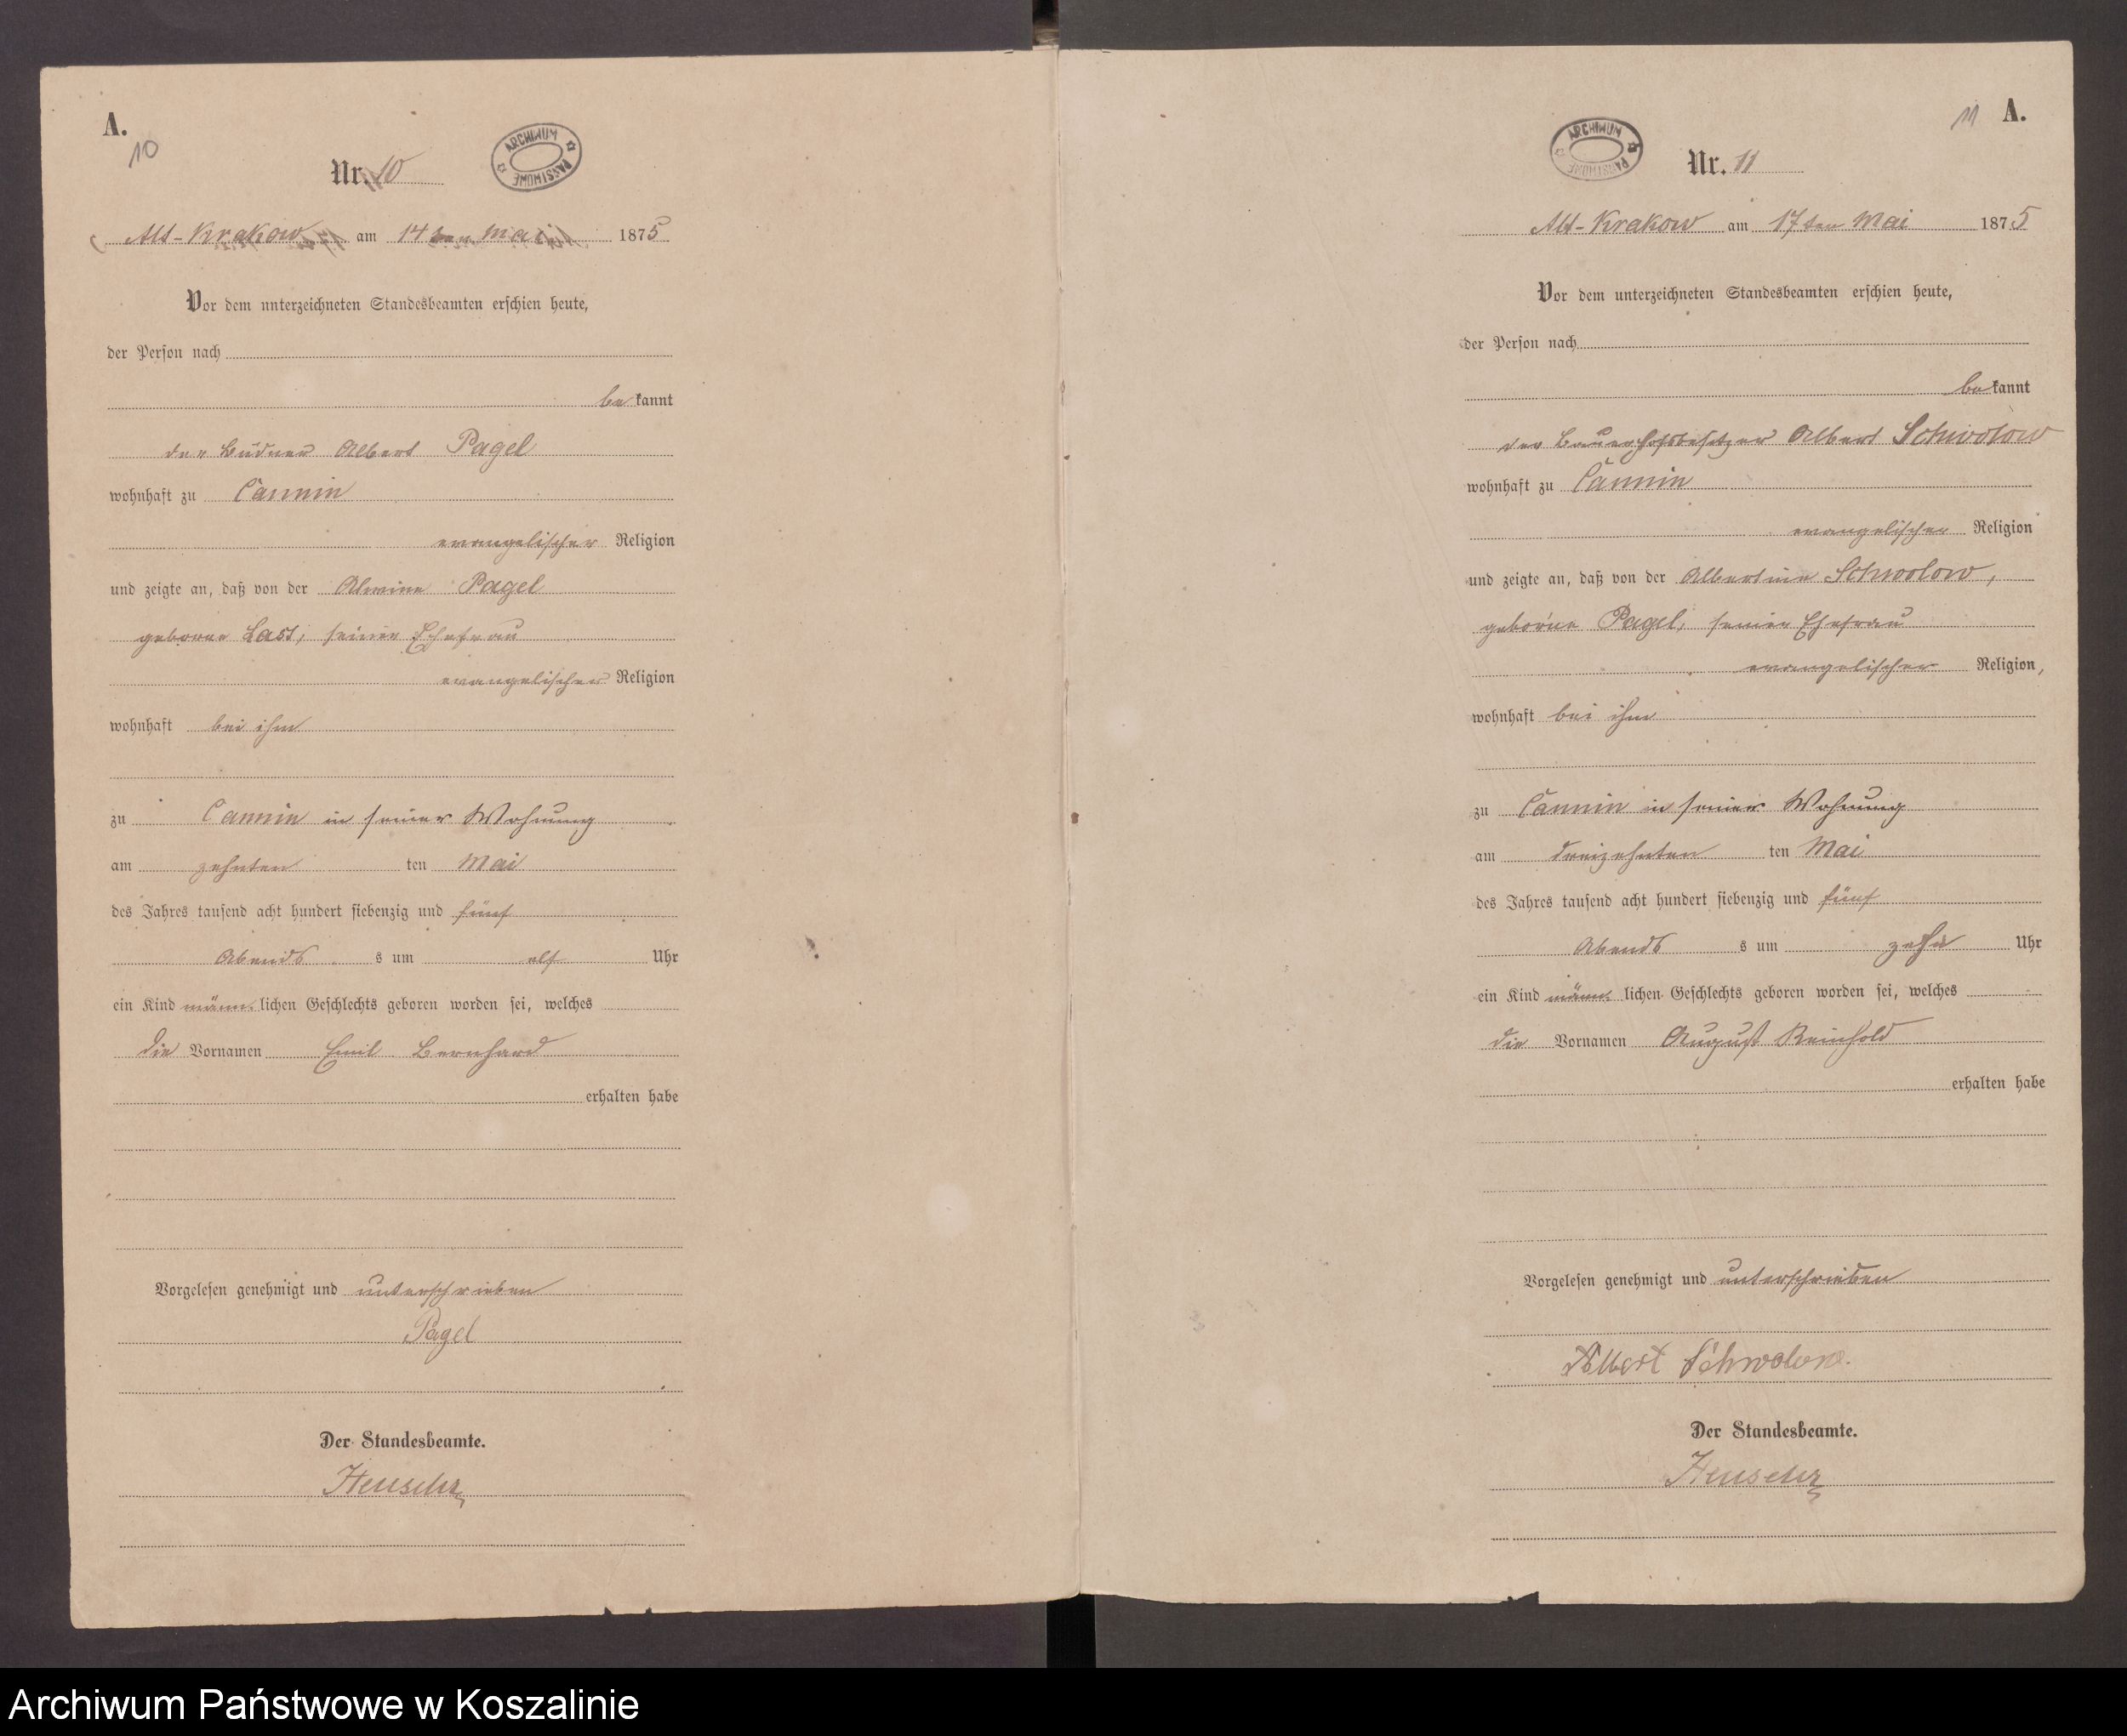 A.
10
ARCHIWUM PAŃSTWOWE
Nr. 10
Alt-Krakow am 14ten Mai 1875
Vor dem unterzeichneten Standesbeamten erschien heute,
der Person nach
be kannt
der Büdner Albert Pagel
wohnhaft zu Cannin
evangelischer Religion
und zeigte an, daß von der Alwine Pagel
geborne Last, seiner Ehefrau
evangelischer Religion
wohnhaft bei ihm
zu Cannin in seiner Wohnung
am zehnten ten Mai
des Jahres tausend acht hundert siebenzig und fünf
Abends s um elf Uhr
ein Kind männ lichen Geschlechts geboren worden sei, welches
die Vornamen Emil Bernhard
erhalten habe
Vorgelesen genehmigt und unterschrieben
Pagel
Der Standesbeamte.
11 A.
ARCHIWUM PAŃSTWOWE
Nr. 11
Alt-Krakow am 17ten Mai 1875
Vor dem unterzeichneten Standesbeamten erschien heute,
der Person nach
be kannt
der Bauerhofsbesitzer Albert Schwolow
wohnhaft zu Cannin
evangelischer Religion
und zeigte an, daß von der Albertine Schwolow,
geborne Pagel, seiner Ehefrau
evangelischer Religion,
wohnhaft bei ihm
zu Cannin in seiner Wohnung
am dreizehnten ten Mai
des Jahres tausend acht hundert siebenzig und fünf
Abends s um zehn Uhr
ein Kind männ lichen Geschlechts geboren worden sei, welches
die Vornamen August Reinhold
erhalten habe
Vorgelesen genehmigt und unterschrieben
Albert Schwolow.
Der Standesbeamte.
Archiwum Państwowe w Koszalinie